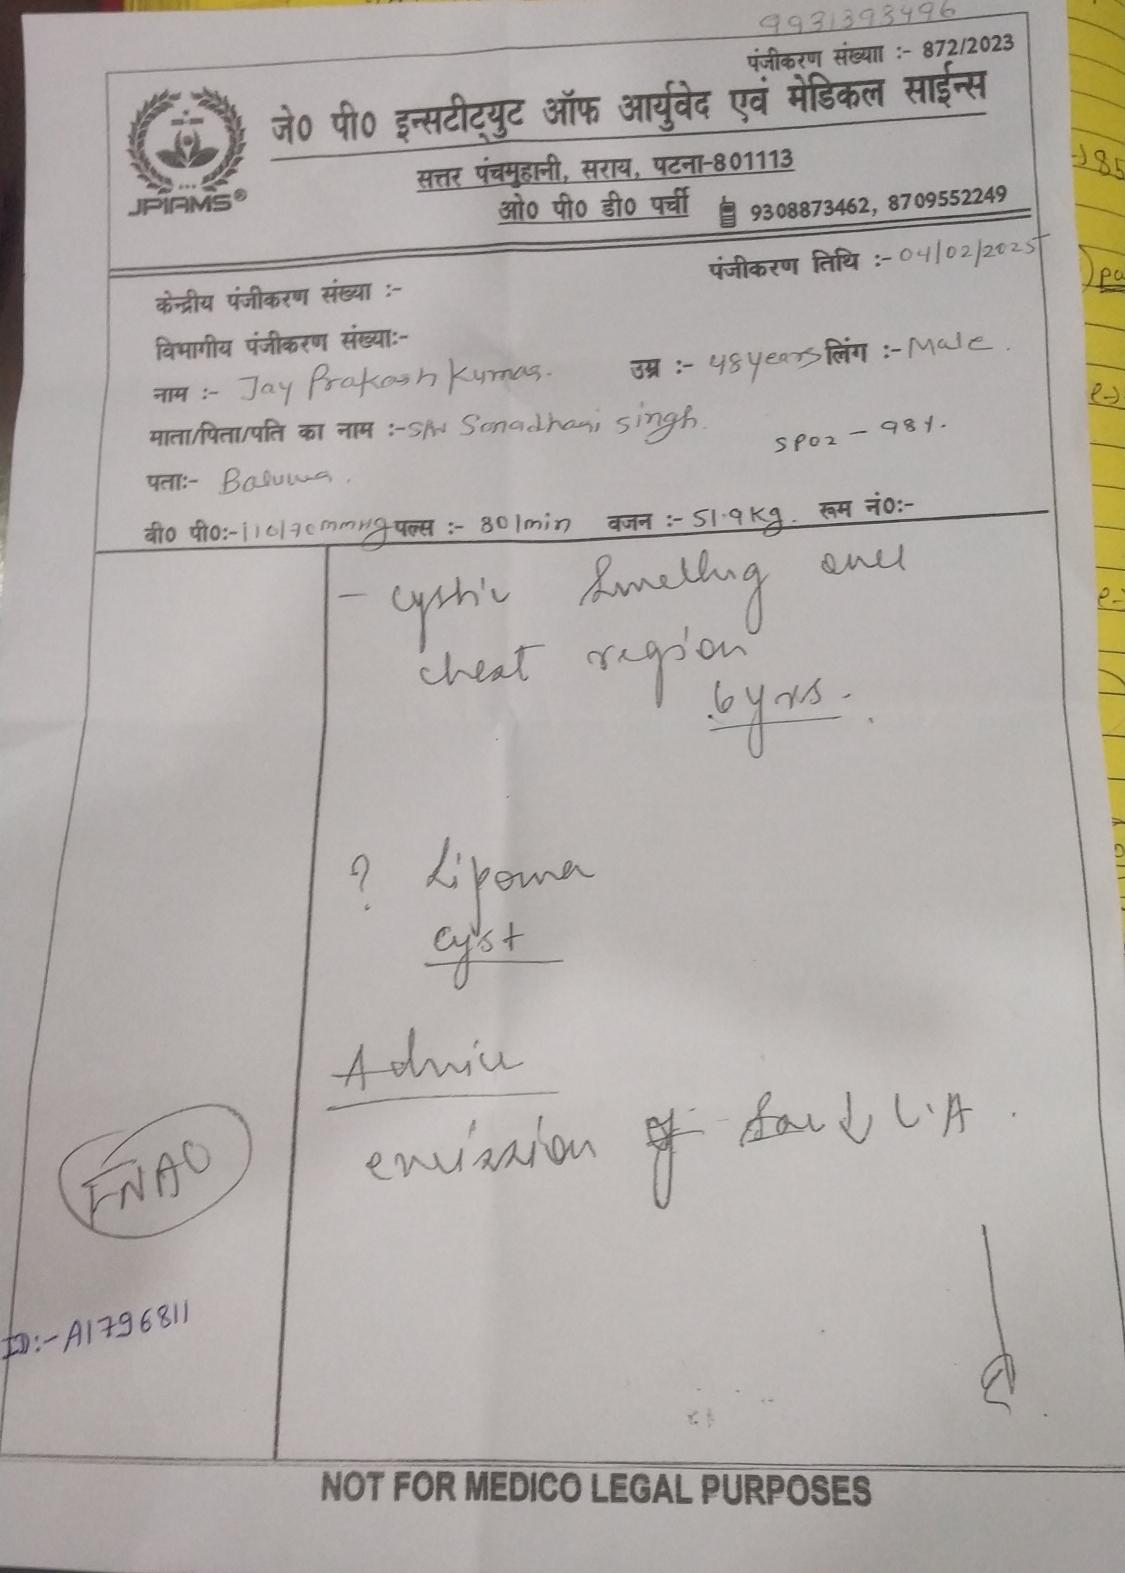 9931393496
पंजीकरण संख्याा :- 872/2023
जे० पी० इन्सटीट्युट ऑफ आर्युवेद एवं मेडिकल साईन्स
JPIAMS®
सत्तर पंचमुहानी, सराय, पटना-801113
ओ० पी० डी० पर्ची 9308873462, 8709552249
पंजीकरण तिथि :- 04/02/2025
केन्द्रीय पंजीकरण संख्या :-
विभागीय पंजीकरण संख्याः-
नाम :- Jay Prakash Kumar. उम्र :- 48 years लिंग :- Male.
माता/पिता/पति का नाम :- Sonadhari Singh.
SPO2 - 98%.
पताः- Baluwa.
बी० पी०:- 110/70mmHg पल्स :- 80/min वजन :- 51.9Kg. रूम नं०:-
- cystic Swelling over
chest region
6yrs.
? Lipoma
cyst
Advice
excision of L.A.
FNAC
ID:- A1796811
NOT FOR MEDICO LEGAL PURPOSES